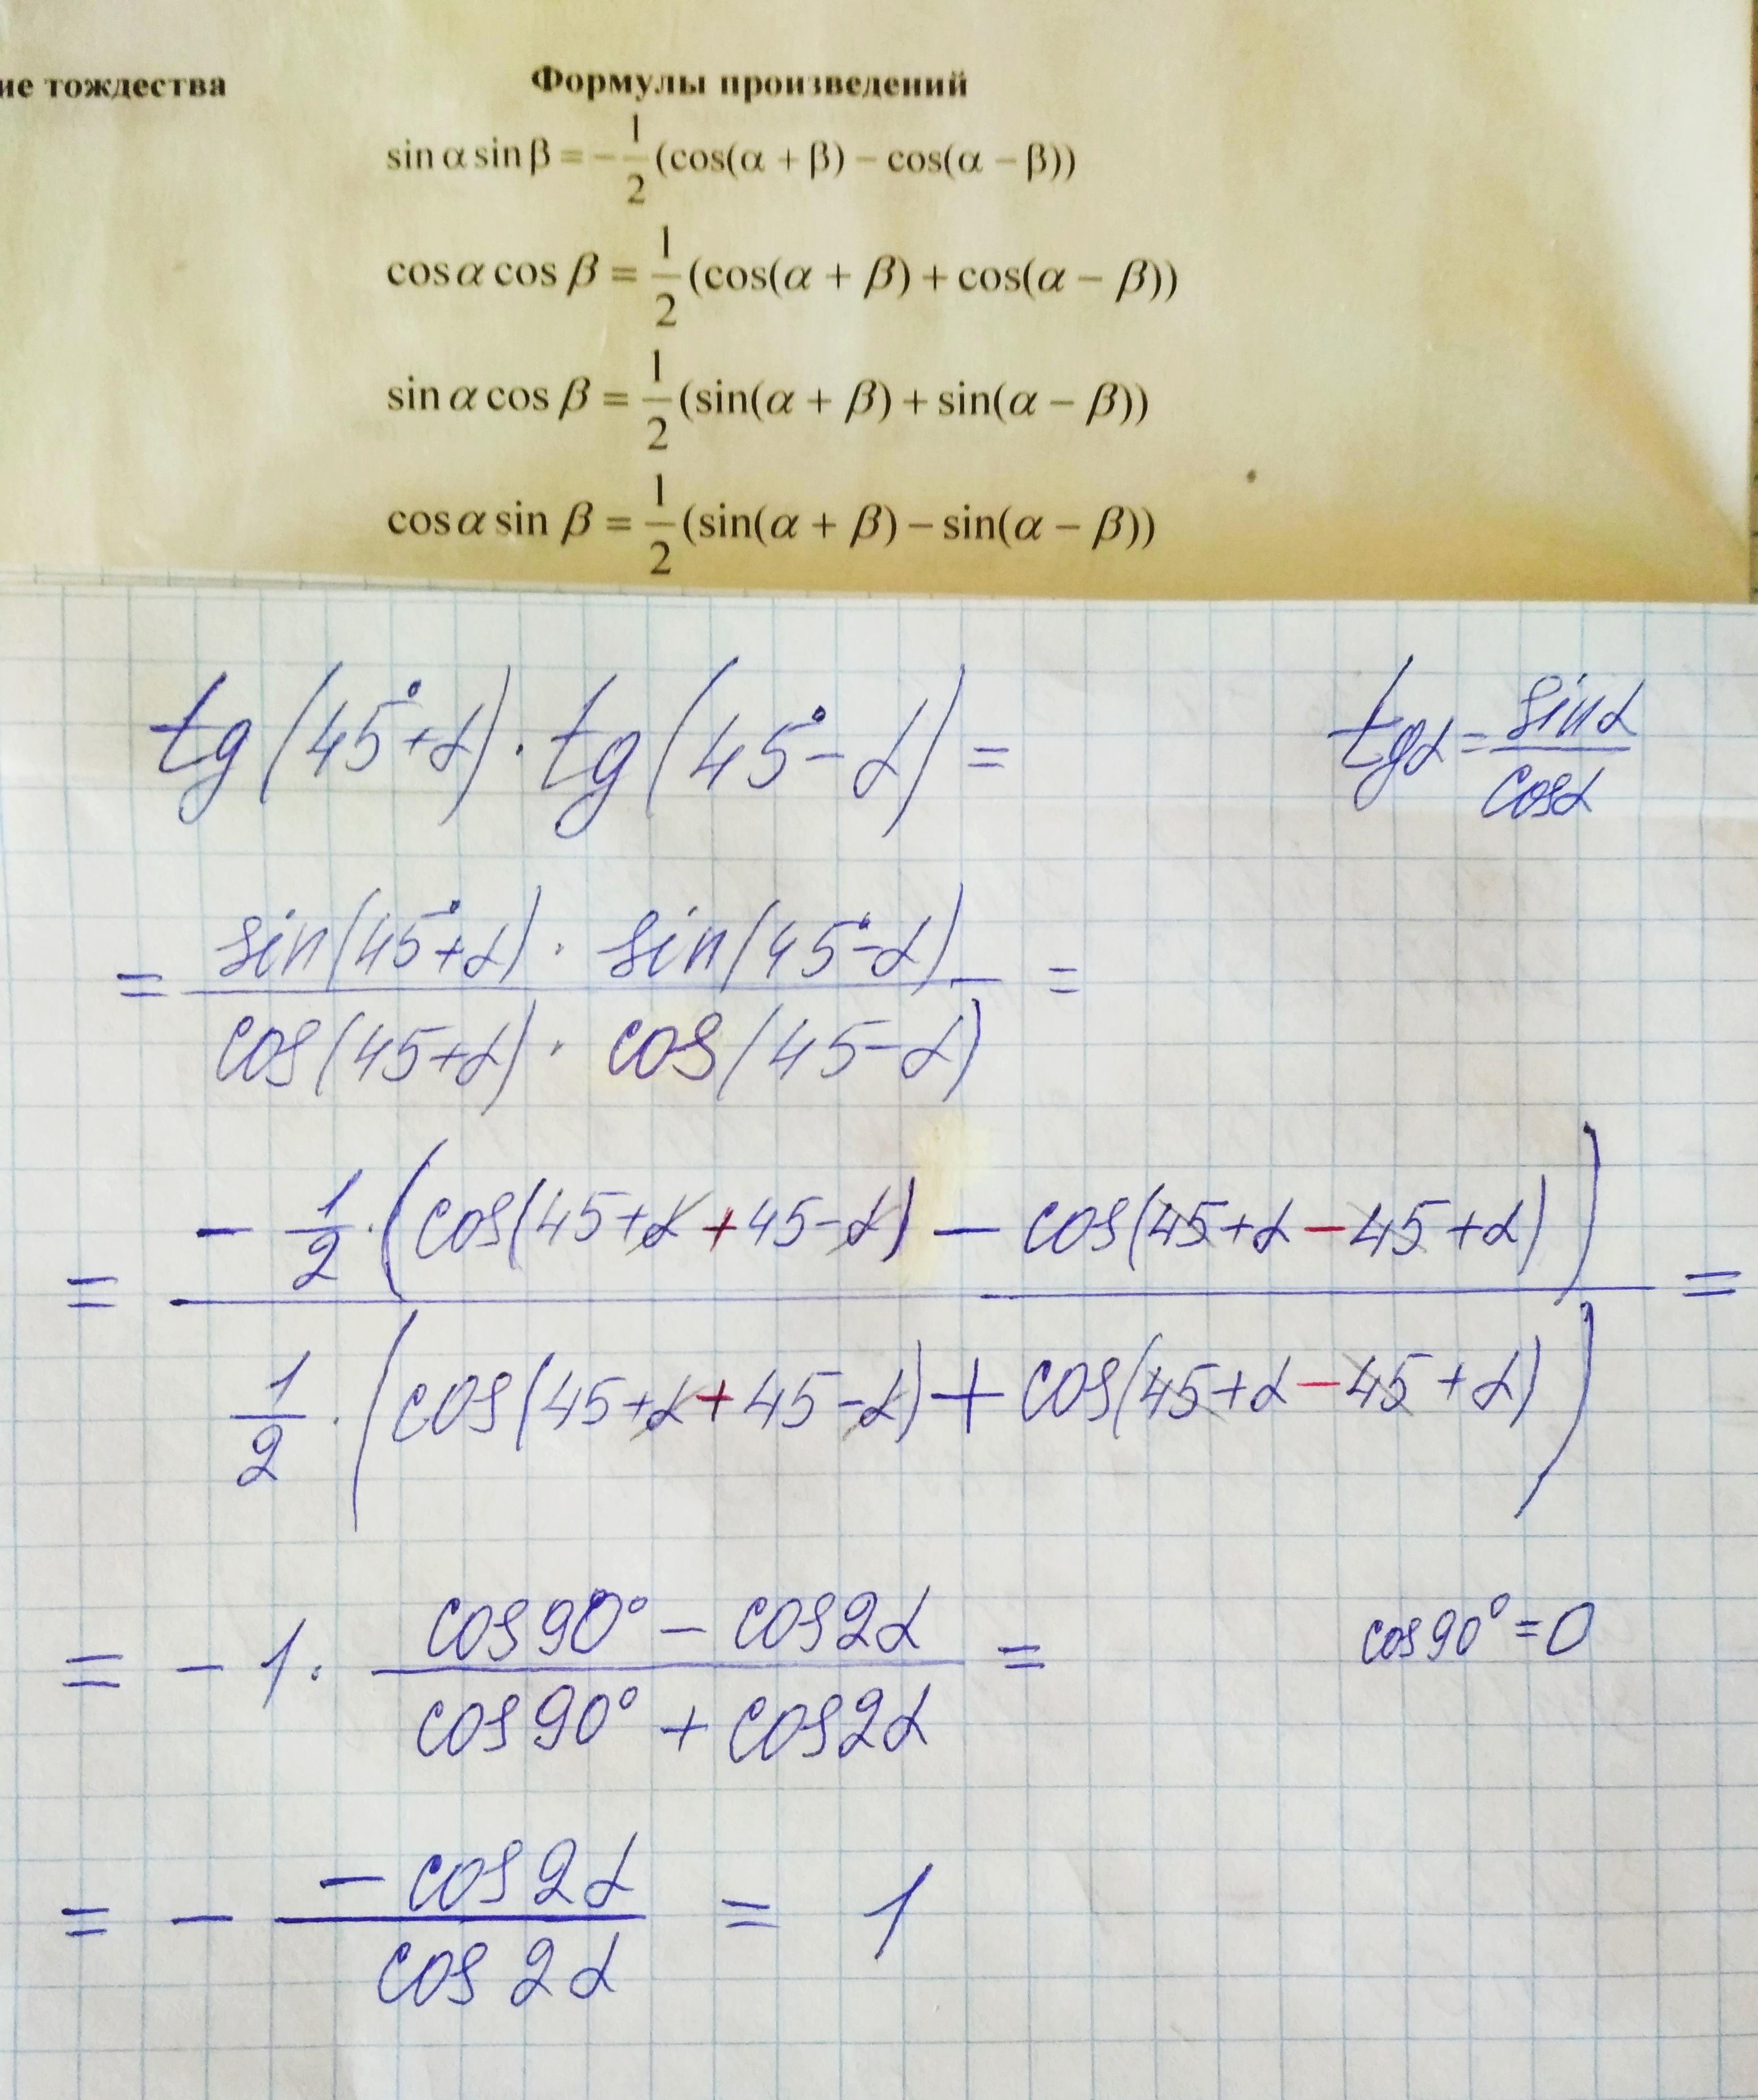 ие тождества Формулы произведений
sin α sin β = -1/2 (cos(α + β) - cos(α - β))
cos α cos β = 1/2 (cos(α + β) + cos(α - β))
sin α cos β = 1/2 (sin(α + β) + sin(α - β))
cos α sin β = 1/2 (sin(α + β) - sin(α - β))
tg(45°+α) · tg(45°-α) = tgα = sinα/cosα
= sin(45°+α) · sin(45°-α) / cos(45+α) · cos(45-α) =
= -1/2 · (cos(45+α+45-α) - cos(45+α-45+α)) / 1/2 · (cos(45+α+45-α) + cos(45+α-45+α)) =
= -1 · cos90° - cos2α / cos90° + cos2α = cos90° = 0
= - -cos2α / cos2α = 1